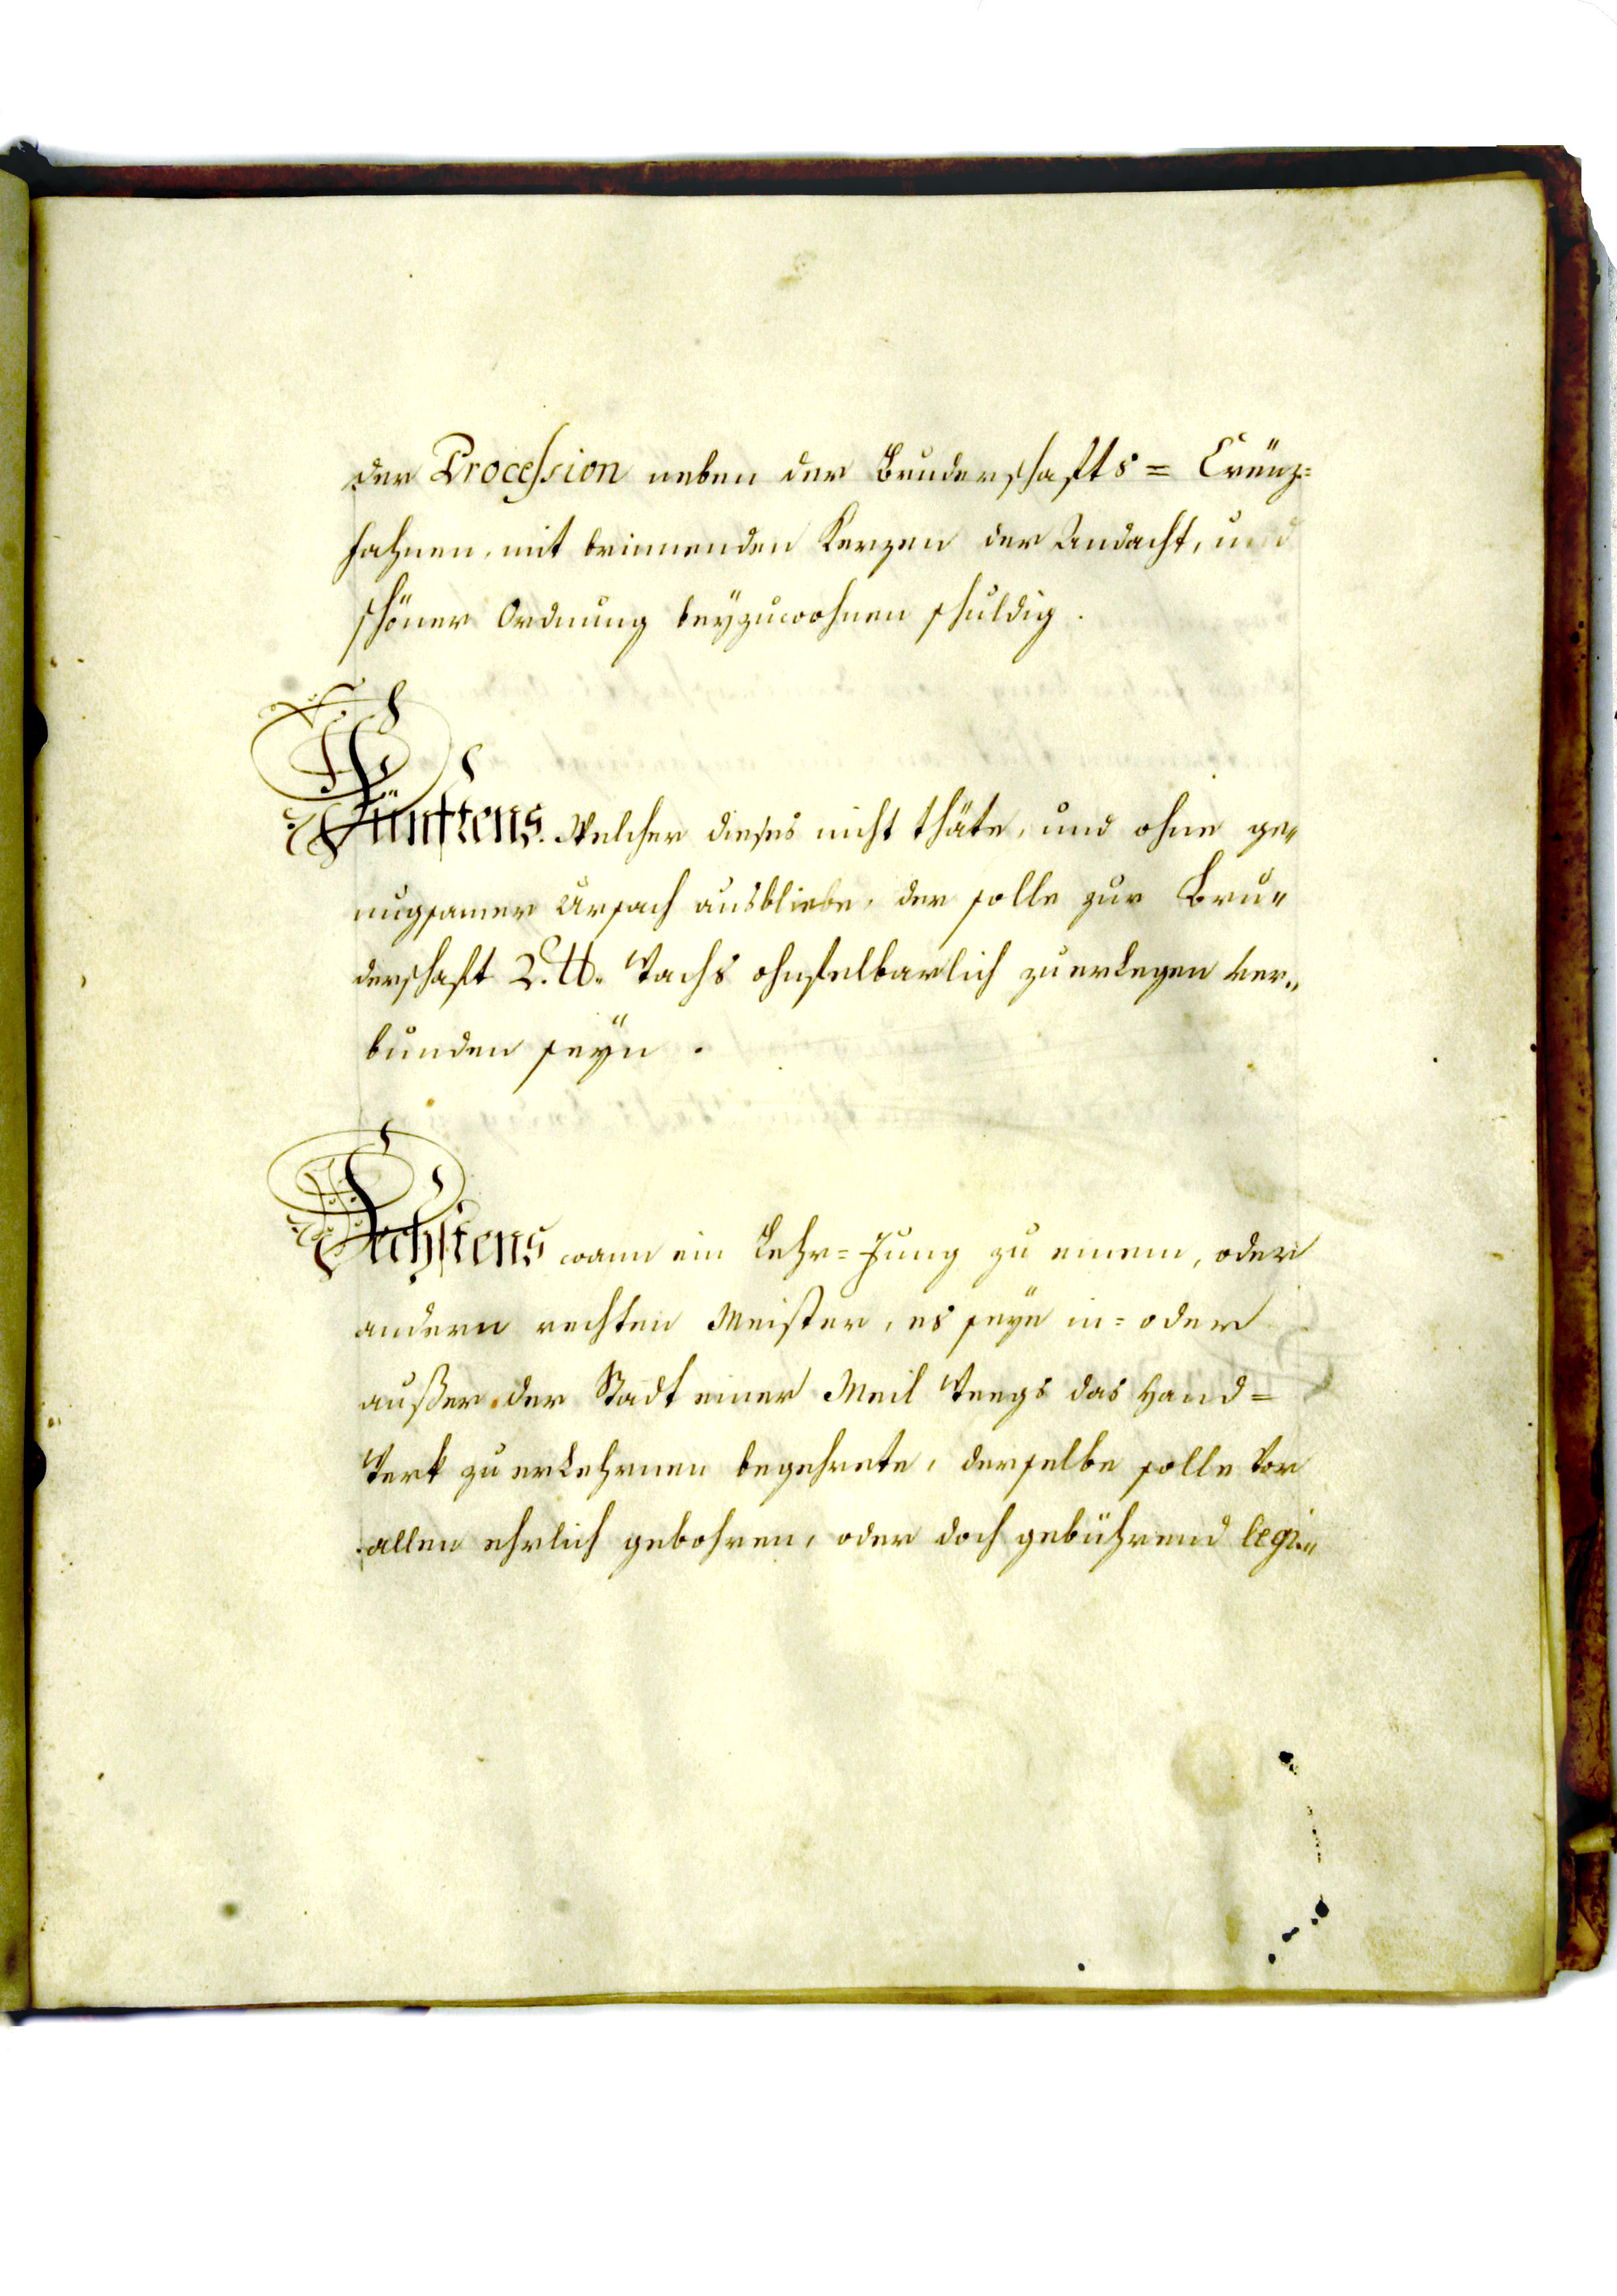 der Procession neben der Bruderschafts= Creüz=
fahnen, mit brinnenden Kerzen der Andacht, und
schöner Ordnung beÿzuwohnen schuldig.
Fünftens. Welcher dieses nicht thäte, und ohne ge„
nugsamer Ursach ausbliebe, der solle zur Bru„
derschaft 2. ℔. Wachs ohnfelbarlich zu erlegen ver„
bunden seÿn.
Sechstens wann ein Lehr=Jung zu einem, oder
andern rechten Meister, es seÿe in= oder
außer der Stadt einer Meil Weegs das Hand=
Werk zu erlehrnen begehrete, derselbe solle vor
allen ehrlich gebohren, oder doch gebührend legi„